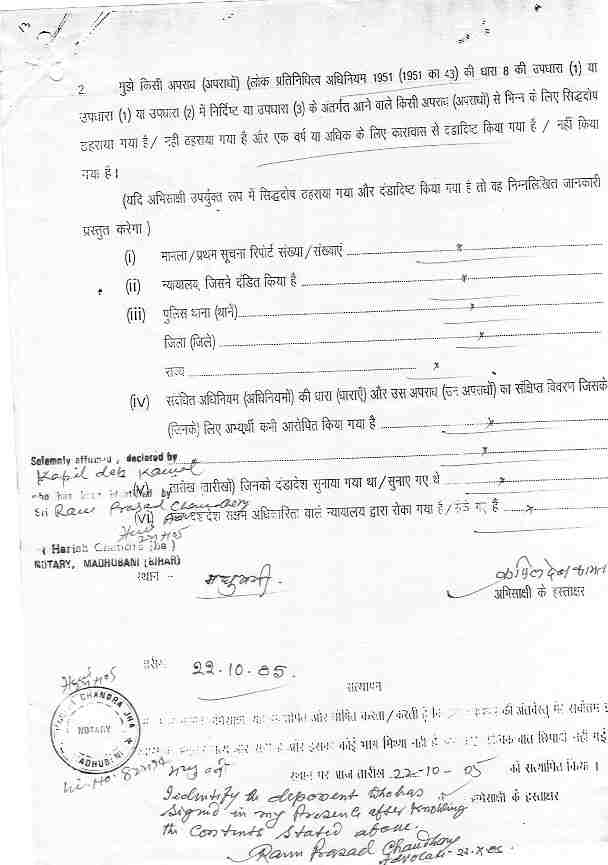 13
2. मुझे किसी अपराध (अपराधों) (लोक प्रतिनिधित्व अधिनियम 1951 (1951 का 43) की धारा 8 की उपधारा (1) या
उपधारा (1) या उपधारा (2) में निर्दिष्ट या उपधारा (3) के अंतर्गत आने वाले किसी अपराध (अपराधों) से भिन्न के लिए सिद्धदोष
ठहराया गया है/ नहीं ठहराया गया है और एक वर्ष या अधिक के लिए कारावास से दंडादिष्ट किया गया है / नहीं किया
गया है।
(यदि अभिसाक्षी उपर्युक्त रूप में सिद्धदोष ठहराया गया और दंडादिष्ट किया गया है तो वह निम्नलिखित जानकारी
प्रस्तुत करेगा )
(i) मामला/प्रथम सूचना रिपोर्ट संख्या/संख्याएं x
(ii) न्यायालय, जिसने दंडित किया है x
(iii) पुलिस थाना (थाने) x
जिला (जिले) x
राज्य x
(iv) संबंधित अधिनियम (अधिनियमों) की धारा (धाराएँ) और उस अपराध (उन अपराधों) का संक्षिप्त विवरण जिसके
(जिनके) लिए अभ्यर्थी कभी आरोपित किया गया है x
x
Solemnly affirmed, declared by
Kapil deb Kamat
(v) तारीख (तारीखों) जिनको दंडादेश सुनाया गया था/सुनाए गए थे x
who has been identified by
Sri Ram Prasad Chaudhery
(vi) दंडादेश सक्षम अधिकारिता वाले न्यायालय द्वारा रोका गया है/रोके गए हैं x
( Harish Chandra Jha )
NOTARY, MADHUBANI (BIHAR)
स्थान - मधुबनी. कपिलदेव कामत
अभिसाक्षी के हस्ताक्षर
तारीख 22.10.05.
सत्यापन
CHANDRA JHA
NOTARY
MADHUBANI
सत्यापित और घोषित करता/करती हूँ कि की अंतर्वस्तु मेरे सर्वोत्तम
और सही है और इसका कोई भाग मिथ्या नहीं है बात छिपाई नहीं गई
मधुबनी स्थान पर आज तारीख 22-10-05 को सत्यापित किया।
अभिसाक्षी के हस्ताक्षर
I identify the deponent who has
signed in my Presence after knowing
the contents stated above.
Ram Prasad Chaudhary
Advocate